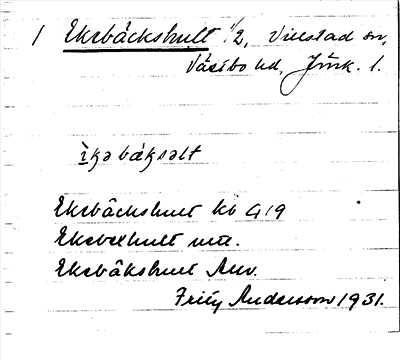 1 Ekebäckshult 1/2, Villstad sn,
Västbo hd, Jönk. l.
ìkə bæksəlt
Ekebäckshult kb G19
Ekebexhult
Ekebäkshult Anv.
Fritz Andersson 1931.